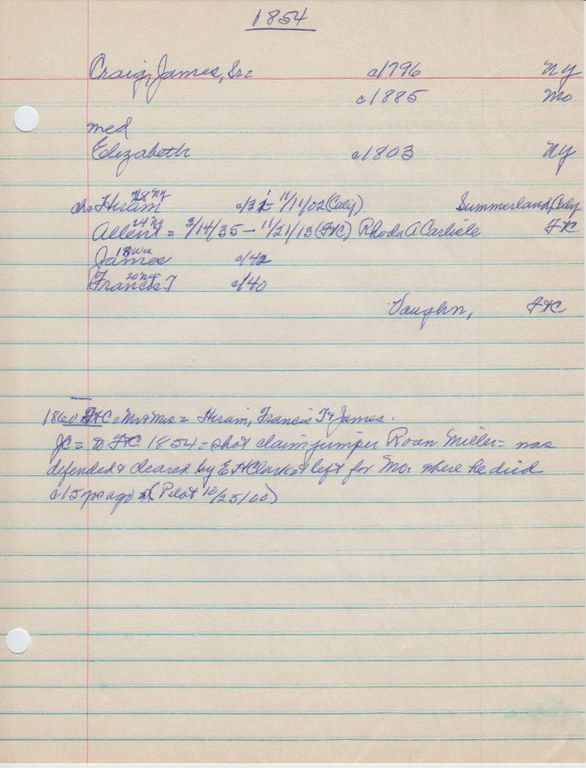 1854
Craig, James, Sr. c1796 NY
c1885 Mo
med
Elizabeth c1803 NY
ch = Hiram 28 NY c/32 - 11/11/02 (Calif) Summerland, Caly
Allen 24 NY = 3/14/35 - 11/21/13 (FxC) Rhoda A Carlisle FxC
James 18 Wis c/42
Francis T 20 NY c/40
Vaughn, FxC
1860 FxC: Mr & Mrs = Hiram, Francis T & James.
JC = to FxC 1854 = shot claim jumper Roan Miller = was
defended & cleared by E H Clark & left for Mo. where he died
c15 yrs ago (Pilot 10/25/00)